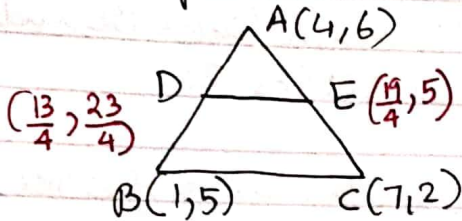 A(4,6)
D E (19/4, 5)
(13/4, 23/4)
B(1,5) C(7,2)